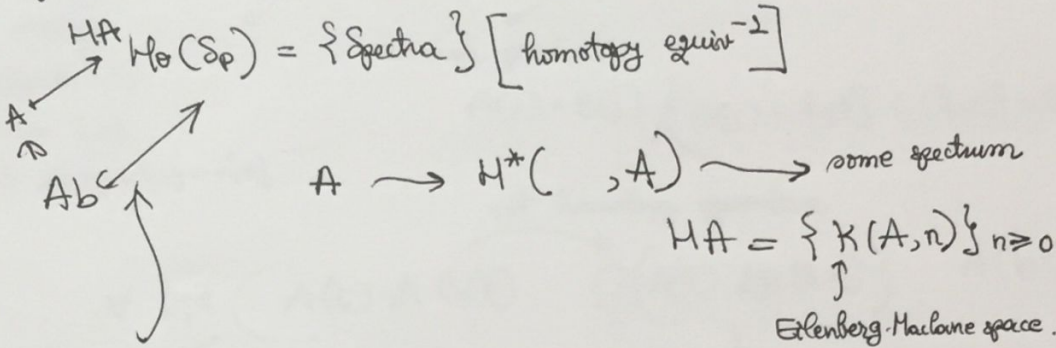 HA Ho(Sp) = {Spectra} [homotopy equiv⁻¹]
A
Ab A → H*( , A) → some spectrum
HA = {K(A,n)} n≥0
Eilenberg-Maclane space.